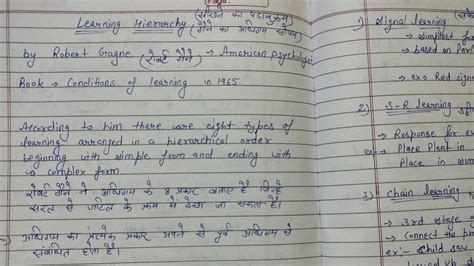 Learning Hierarchy (सीखने का पदानुक्रम)
(गैने का अधिगम सोपान)
by Robert Gagne (रोबर्ट गैने) → American Psychologist
Book → Conditions of learning in 1965.
According to him there are eight types of
learning arranged in a hierarchical order
beginning with simple from and ending with
a complex form.
रोबर्ट गैने ने अधिगम के 8 प्रकार बताए हैं जिन्हें
सरल से जटिल के क्रम में देखा जा सकता है।
→ अधिगम का प्रत्येक प्रकार अपने से पूर्व अधिगम से
संबंधित होता है।
1) Signal learning
→ simplest
→ based on
→ ex→ Red
2) S-R learning
→ Response for
ex → Place Plant in
Place in
3) Chain learning
→ 3rd stage
→ Connect the
ex:- Child saw